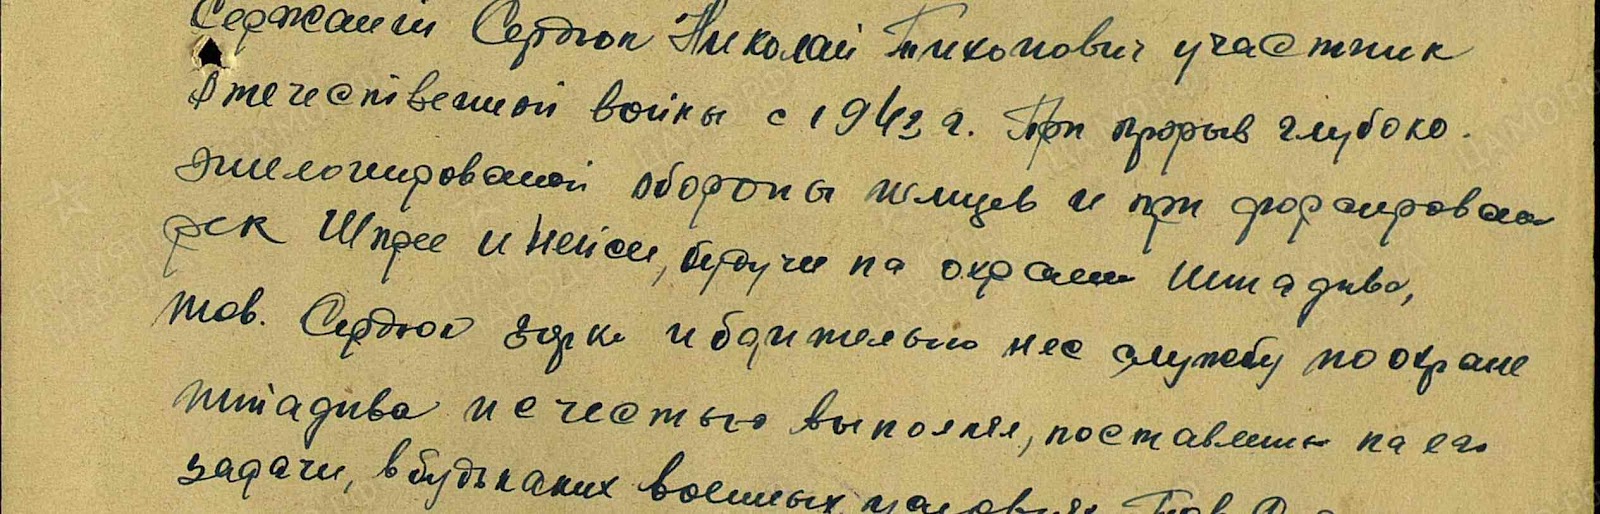 Сержант Сердюк Николай Тихонович участник
Отечественной войны с 1943 г. При прорыв глубоко.
эшелонированой обороны немцев и при форсировании
рек Шпрее и Нейсе, будучи на охране штадива,
тов. Сердюк зорко и бдительно нес службу по охране
штадива и с честью выполнял, поставленые на его
задачи, в будь каких военных условиях Тов.